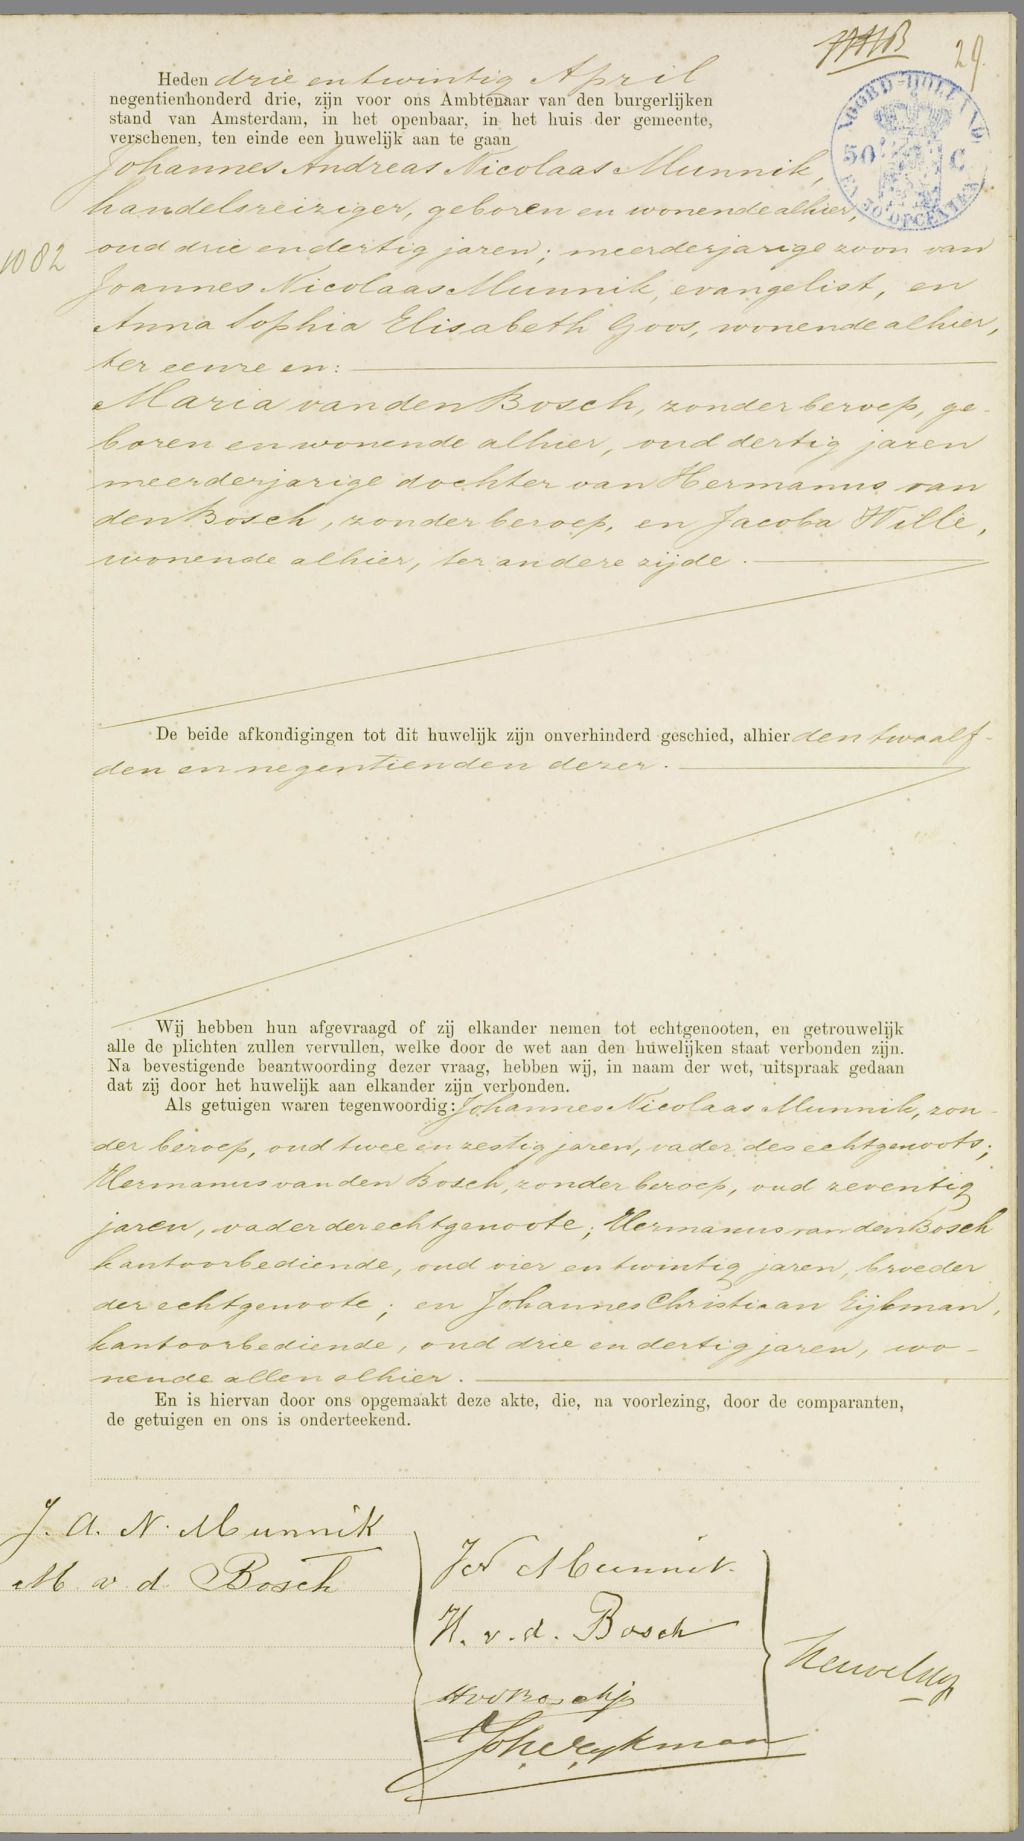 29.
NOORD-HOLLAND
50 C
EN 50 OPCENTEN
Heden drie en twintig April
negentienhonderd drie, zijn voor ons Ambtenaar van den burgerlijken
stand van Amsterdam, in het openbaar, in het huis der gemeente,
verschenen, ten einde een huwelijk aan te gaan
Johannes Andreas Nicolaas Munnik,
handelsreiziger, geboren en wonende alhier,
1082
oud drie en dertig jaren; meerderjarige zoon van
Joannes Nicolaas Munnik, evangelist, en
Anna Sophia Elisabeth Goos, wonende alhier,
ter eenre en:
Maria van den Bosch, zonder beroep, ge-
boren en wonende alhier, oud dertig jaren
meerderjarige dochter van Hermanus van
den Bosch, zonder beroep, en Jacoba Wille,
wonende alhier, ter andere zijde.
De beide afkondigingen tot dit huwelijk zijn onverhinderd geschied, alhier den twaalf-
den en negentienden dezer.
Wij hebben hun afgevraagd of zij elkander nemen tot echtgenooten, en getrouwelijk
alle de plichten zullen vervullen, welke door de wet aan den huwelijken staat verbonden zijn.
Na bevestigende beantwoording dezer vraag, hebben wij, in naam der wet, uitspraak gedaan
dat zij door het huwelijk aan elkander zijn verbonden.
Als getuigen waren tegenwoordig: Johannes Nicolaas Munnik, zon-
der beroep, oud twee en zestig jaren, vader des echtgenoots;
Hermanus van den Bosch, zonder beroep, oud zeventig
jaren, vader der echtgenoote; Hermanus van den Bosch
kantoorbediende, oud vier en twintig jaren, broeder
der echtgenoote; en Johannes Christiaan Eijkman,
kantoorbediende, oud drie en dertig jaren, wo-
nende allen alhier.
En is hiervan door ons opgemaakt deze akte, die, na voorlezing, door de comparanten,
de getuigen en ons is onderteekend.
J. A. N. Munnik
M v d Bosch
JN Munnik.
H. v. d. Bosch
HvdBosch Jr
Joh. C. Eykman